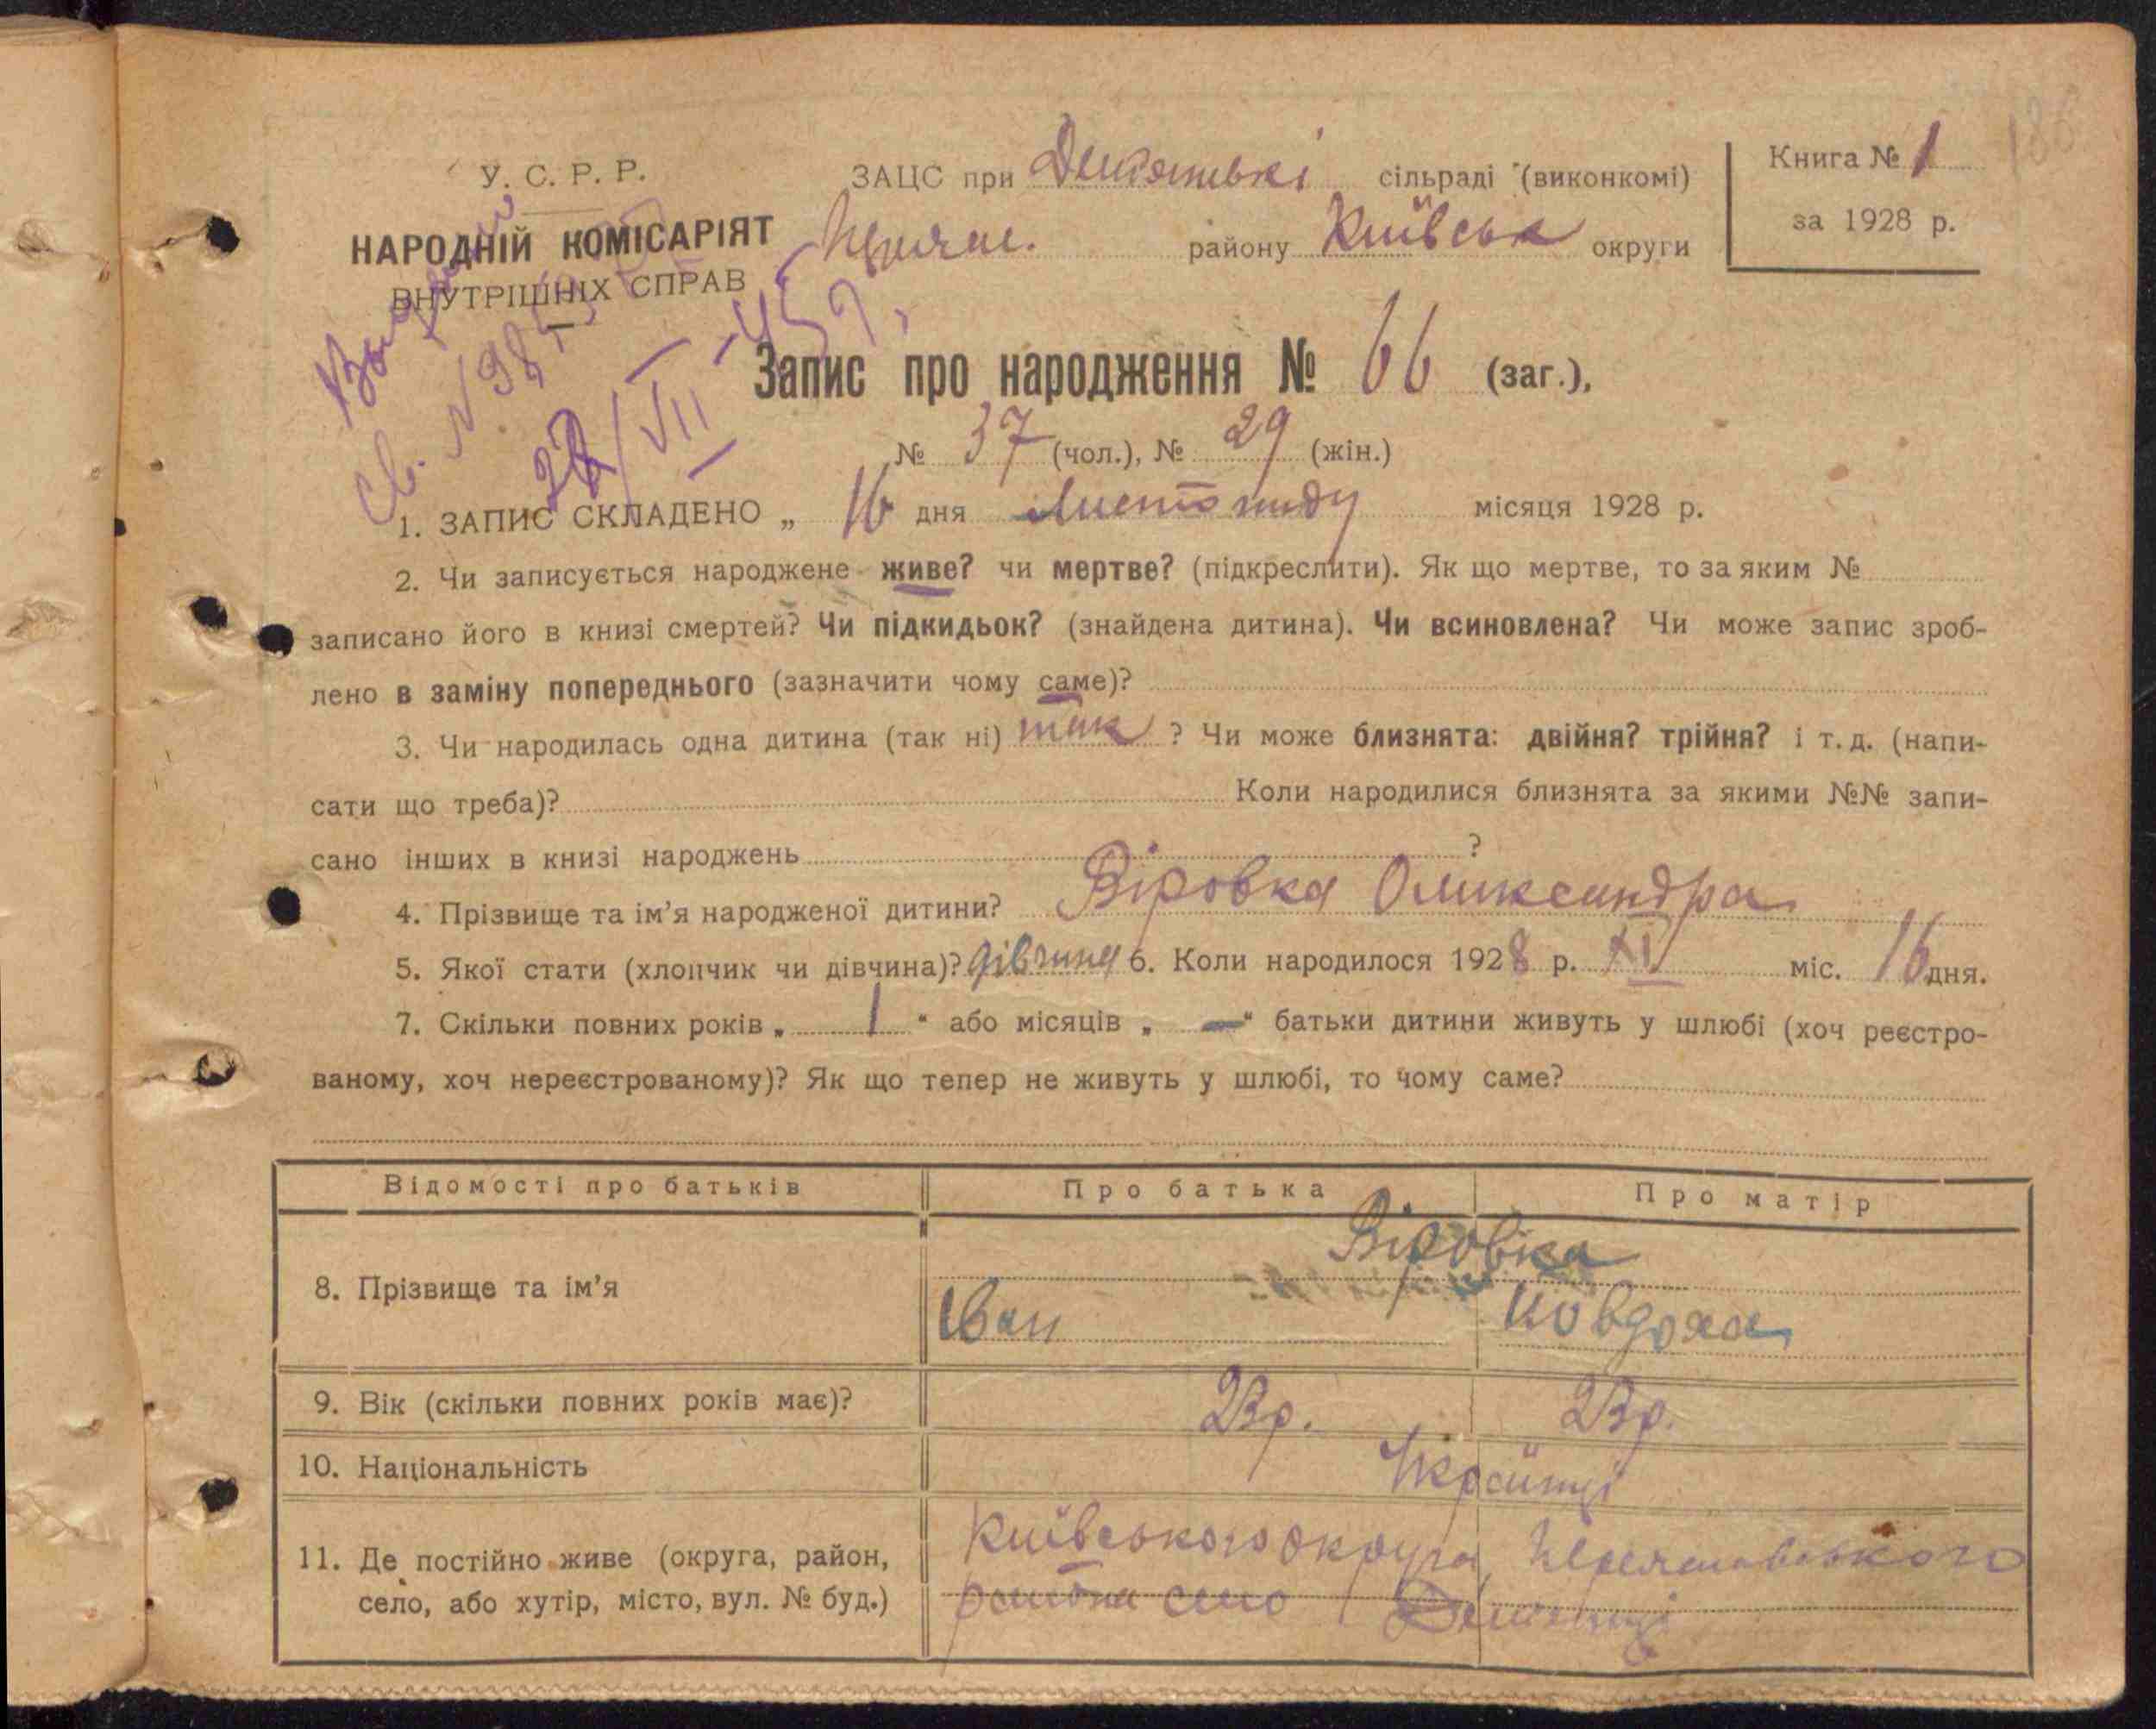 У. С. Р. Р.
НАРОДНІЙ КОМІСАРІЯТ
ВНУТРІШНІХ СПРАВ
ЗАЦС при сільраді (виконкомі)
району Київськ округи
Книга № 1
за 1928 р.
186
Св. № 985
Запис про народження № 66 (заг.),
№ 37 (чол.), № 29 (жін.)
1. ЗАПИС СКЛАДЕНО „ 16 дня Листопаду місяця 1928 р.
2. Чи записується народжене живе? чи мертве? (підкреслити). Як що мертве, то за яким №
записано його в книзі смертей? Чи підкидьок? (знайдена дитина). Чи всиновлена? Чи може запис зроб-
лено в заміну попереднього (зазначити чому саме)?
3. Чи народилась одна дитина (так ні) так ? Чи може близнята: двійня? трійня? і т. д. (напи-
сати що треба)? Коли народилися близнята за якими №№ запи-
сано інших в книзі народжень ?
4. Прізвище та ім’я народженої дитини? Віровка Олександра
5. Якої стати (хлопчик чи дівчина)? дівчина 6. Коли народилося 1928 р. XI міс. 16 дня.
7. Скільки повних років „ 1 “ або місяців „ — “ батьки дитини живуть у шлюбі (хоч реєстро-
ваному, хоч нереєстрованому)? Як що тепер не живуть у шлюбі, то чому саме?
Відомості про батьків Про батька Про матір
8. Прізвище та ім’я Віровка
Іван Ювдоха
9. Вік (скільки повних років має)? 23р. 23р.
10. Національність Українці
11. Де постійно живе (округа, район, Київського округа,
село, або хутір, місто, вул. № буд.) района село